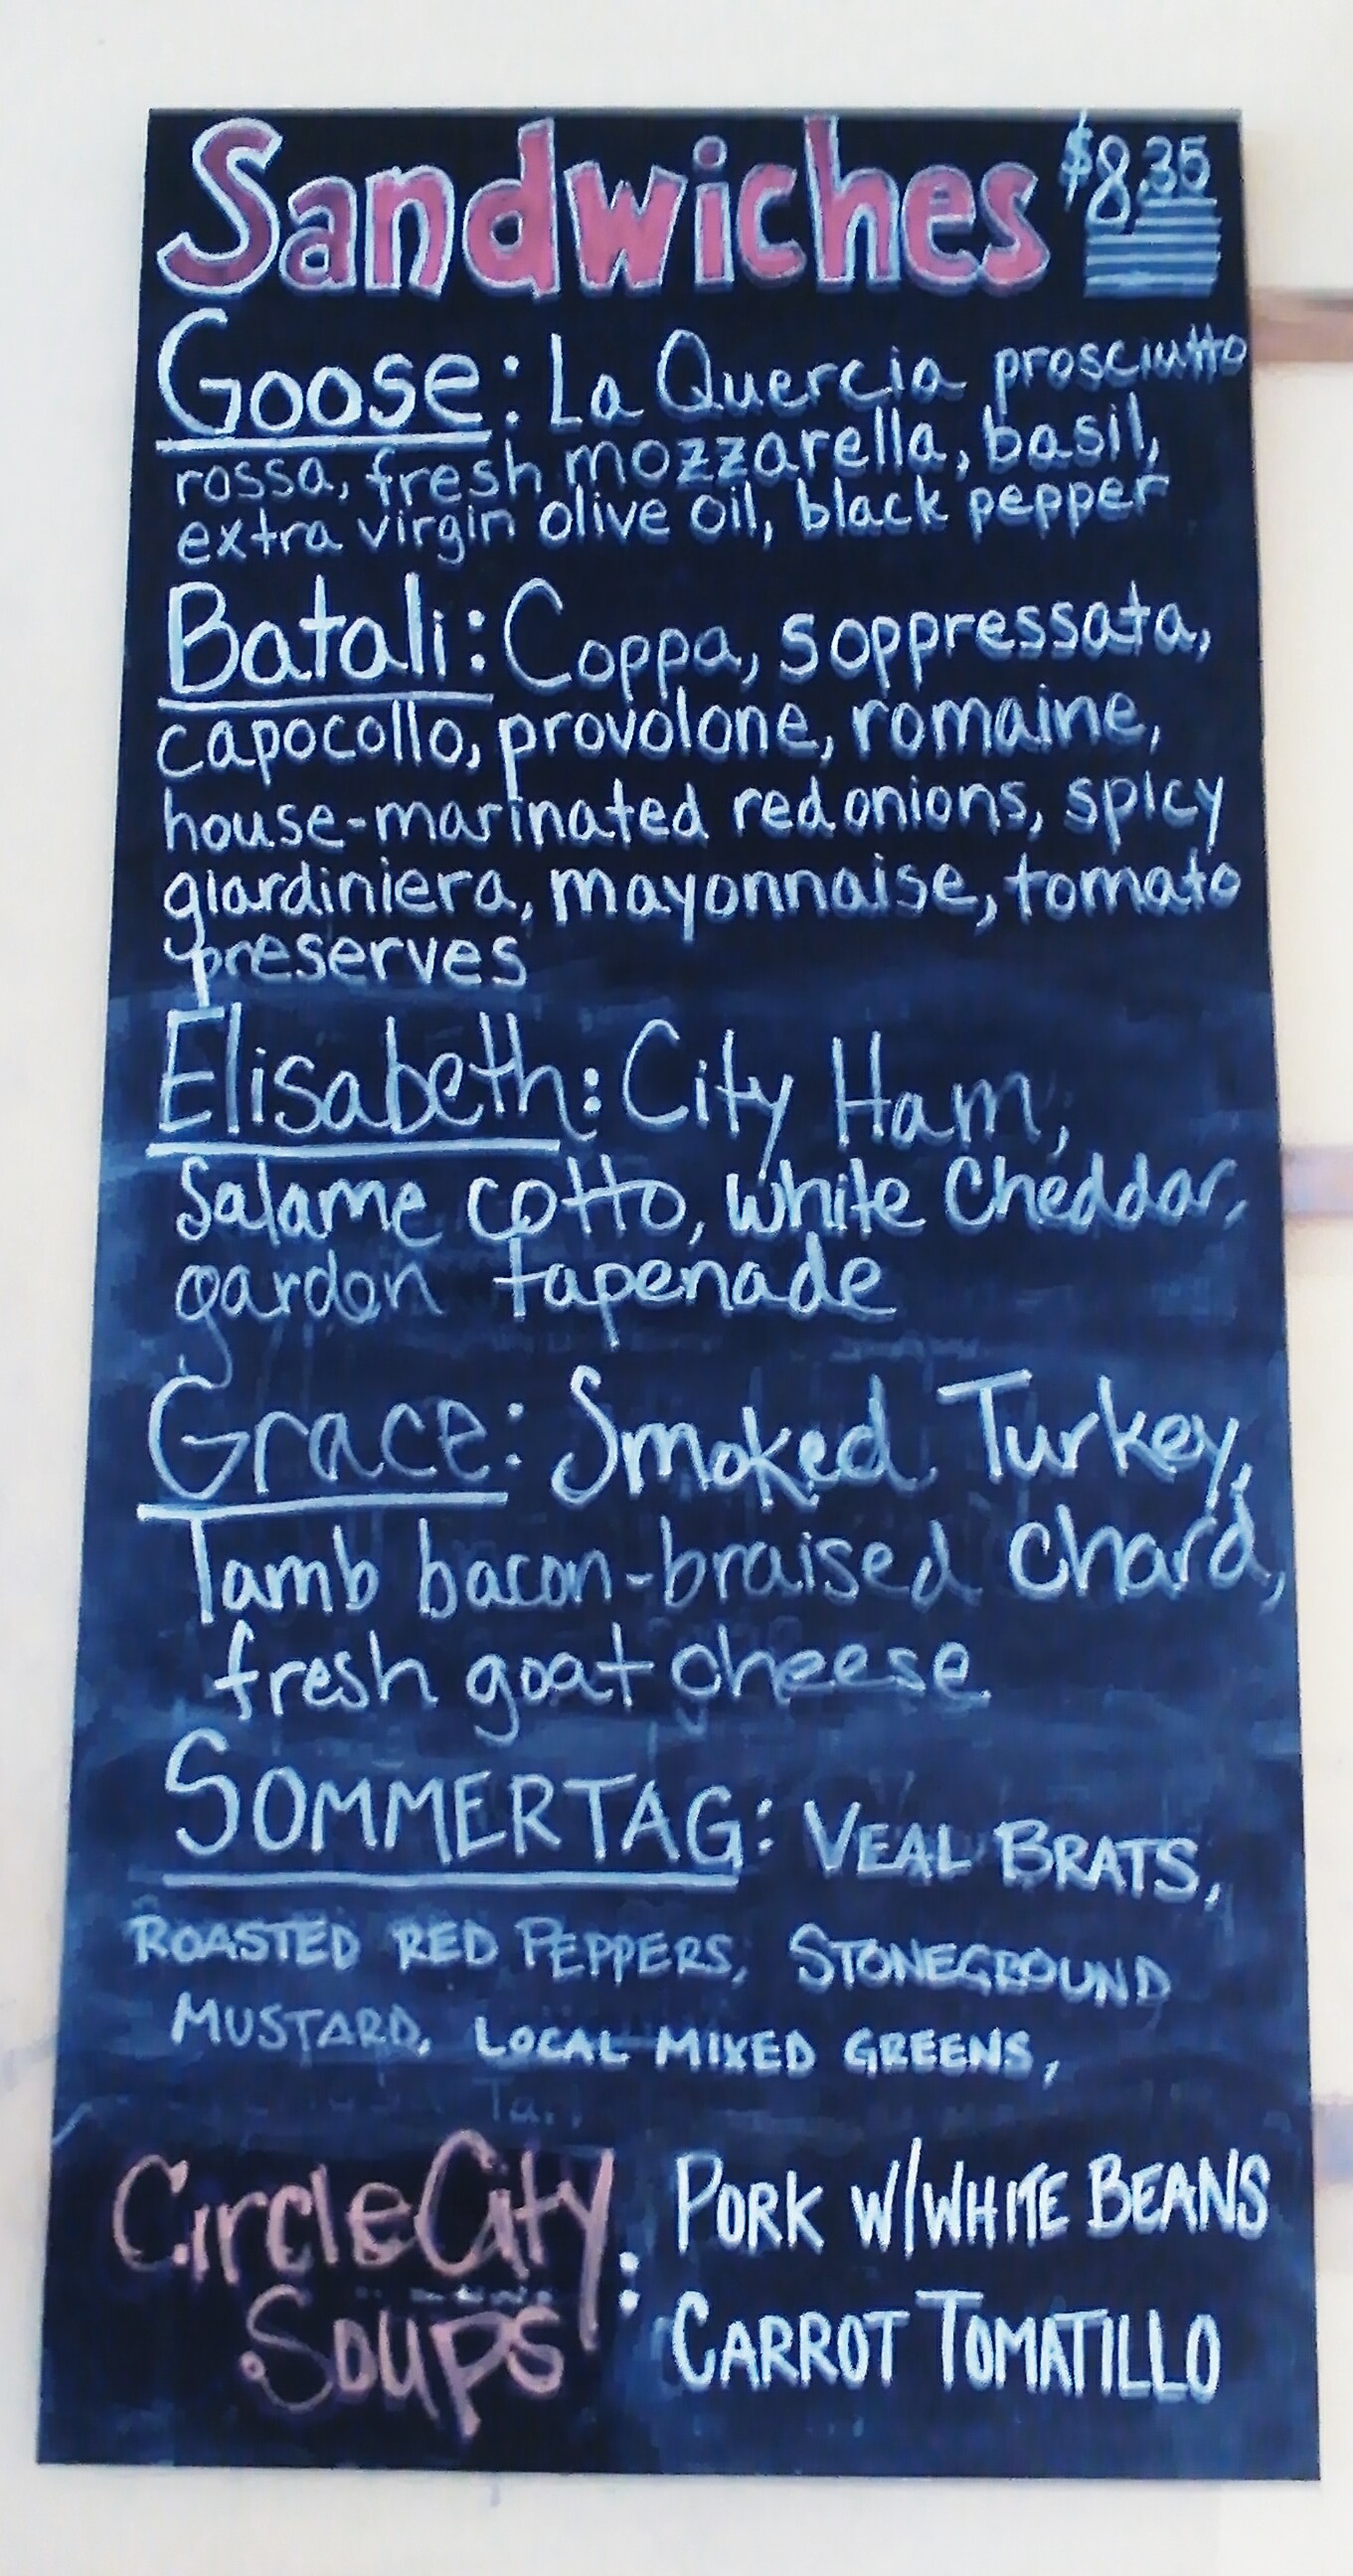 Sandwiches $8.35
Goose: La Quercia prosciutto
rossa, fresh mozzarella, basil,
extra virgin olive oil, black pepper
Batali: Coppa, soppressata,
capocollo, provolone, romaine,
house-marinated red onions, spicy
giardiniera, mayonnaise, tomato
preserves
Elisabeth: City Ham,
Salame cotto, white Cheddar,
garden tapenade
Grace: Smoked Turkey,
Iamb bacon-braised Chard,
fresh goat cheese
SOMMERTAG: VEAL BRATS,
ROASTED RED PEPPERS, STONEGROUND
MUSTARD, LOCAL MIXED GREENS,
Circle City Soups: PORK W/WHITE BEANS
CARROT TOMATILLO